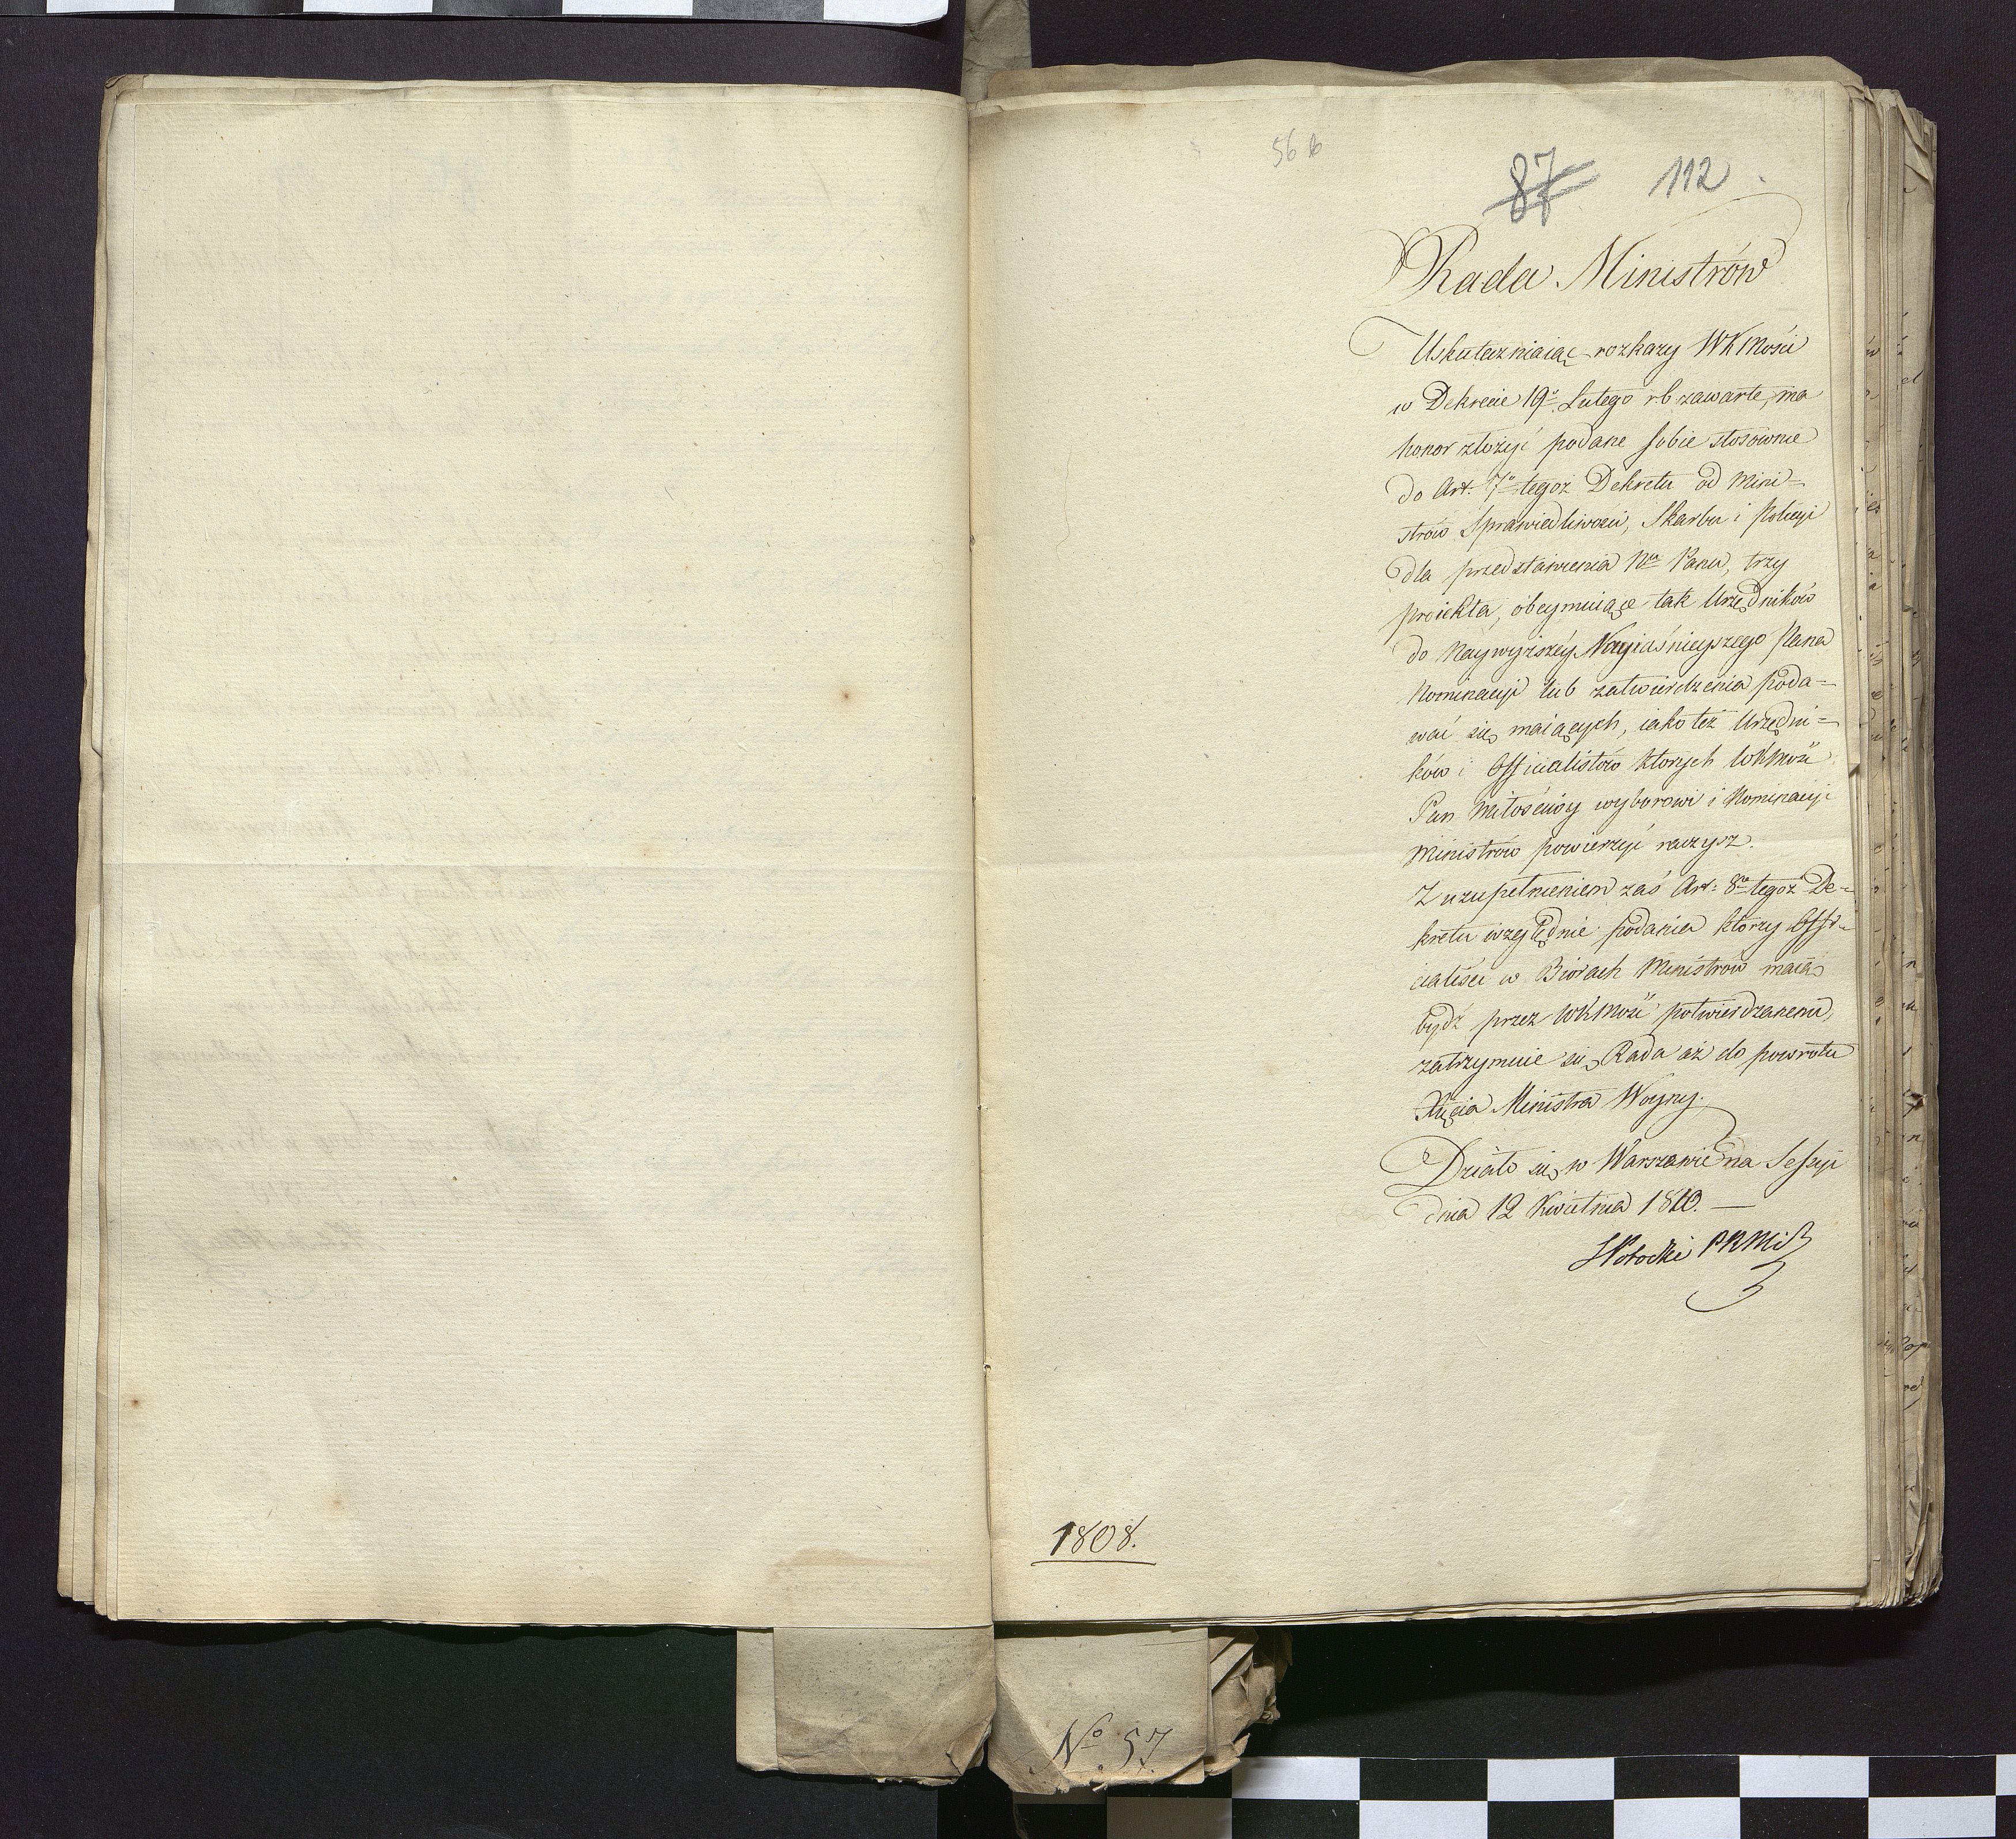 56 b
87 112
Rada Ministrów
Uskuteczniaiąc rozkazy WKMości
w Dekrecie 19º Lutego rb zawarte, ma
honor złożyć podane sobie stosownie
do Art. 7º tegoż Dekretu od Mini=
strów Sprawiedliwości, Skarbu i Policyi
dla przedstawienia Mu Panu, trzy
proiekta, obeymuiące tak Urzędników
do Naywyższéy Nayiaśnieyszego Pana
Nominacyi lub zatwierdzenia poda=
wać się maiących, iako też Urzędni=
ków i Officialistów ktorych WKMość
Pan Miłościwy wyborowi i Nominacyi
Ministrów powierzyć raczysz.
Z uzupełnieniem zaś Art: 8go tegoż De=
kretu względnie podania ktorzy Offi=
cialiści w Biórach Ministrów maią
bydź przez WKMość potwierdzanemi,
zatrzymuie się Rada aż do powrotu
Xięcia Ministra Woyny.
Działo się w Warszawie na Sessyi
dnia 12 Kwietnia 1810. —
SPotocki PRMi
1808.
Nº 57.